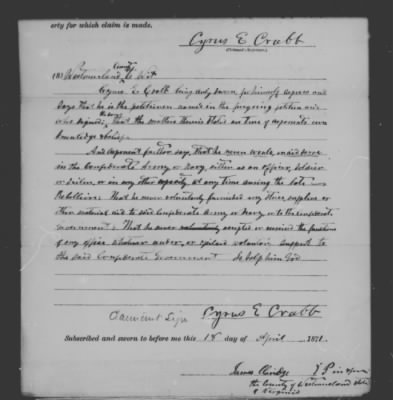 erty for which claim is made.
Cyrus E Crabb
(B) Westmoreland County to Wit
Cyrus E Crabb being duly sworn for himself deposes and
Says that he is the petitioner named in the foregoing petition and
who signed the same, that the matters therein stated are true of deponents own
Knowledge & belief.
And deponent further say, that he never would, ever served
in the Confederate Army or Navy either as an officer, soldier
or sailor, or in any other capacity at any time during the late
Rebellion: that he never voluntarily furnished any stores, supplies or
other material aid to said Confederate Army or Navy or to the Confederate
Government. that he never voluntarily accepted or exercised the functions
of any office whatever under, or yielded voluntary support to
the said Confederate Government So help him God
Claimant Sign Cyrus E Crabb
Subscribed and sworn to before me this 18 day of April 1871.
James J P in & for
the County of Westmoreland State
of Virginia